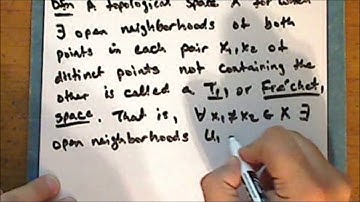 Dfn A topological space X for which
∃ open neighborhoods of both
points in each pair x₁, x₂ of
distinct points not containing the
other is called a T₁, or Frechet,
space. That is, ∀ x₁ ≠ x₂ ∈ X ∃
open neighborhoods U₁